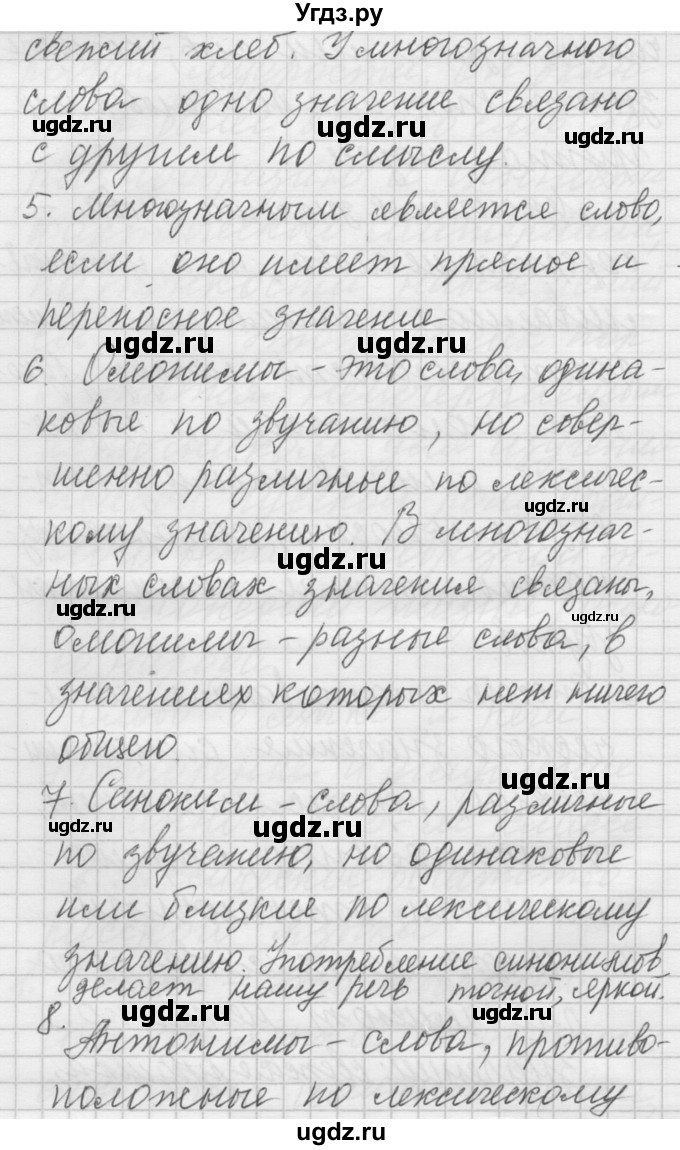 Угдз.ру
свежий хлеб. У многозначного
слова одно значение связано
ugdz.ru ugdz.ru ugdz.ru
с другим по смыслу.
5. Многозначным является слово,
если оно имеет прямое и
переносное значение
ugdz.ru ugdz.ru
6. Омонимы - это слова, одина-
ковые по звучанию, но совер-
шенно различные по лексичес-
ugdz.ru
кому значению. В многознач-
ugdz.ru
ных словах значения связаны,
ugdz.ru ugdz.ru
омонимы - разные слова, в
значениях которых нет ничего
общего.
7. Синоним - слова, различные
ugdz.ru ugdz.ru
по звучанию, но одинаковые
или близкие по лексическому
значению. Употребление синонимов
делает нашу речь точной, яркой.
ugdz.ru ugdz.ru
8. Антонимы - слова, противо-
положные по лексическому
ugdz.ru